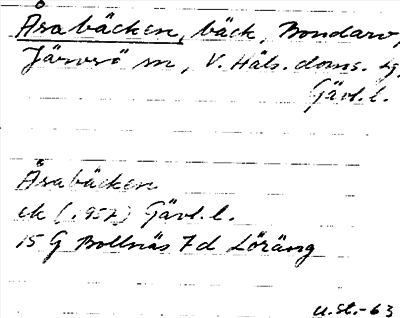 Åsabäcken, bäck, Bondarv,
Järvsö sn, V. Häls. doms. sg,
Gävl. l.
Åsabäcken
ek (1957) Gävl. l.
15 G Bollnäs 7d Löräng
u.st.-63